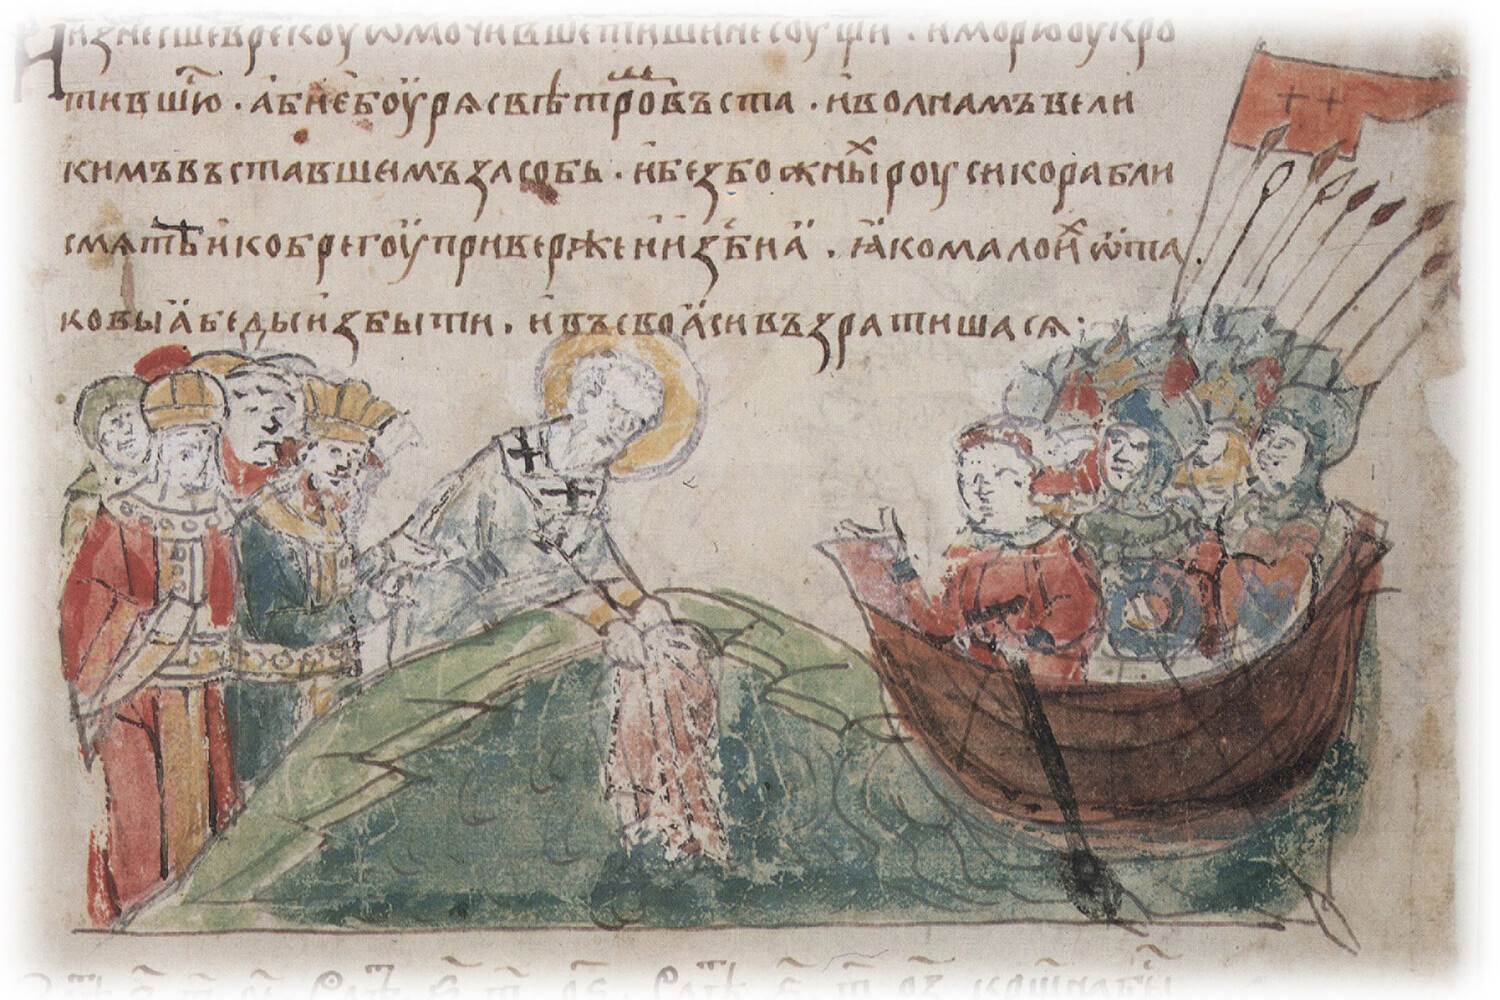 изнесшеврекоуѡмочившетишинесоущи · иморюоукро
тившю · абиебоурясвѣтромъвъста · иволнамъвели
кимъвъставшемъзасобь · ибезбожныхроусикорабли
смятѣикобрегоуприверженизбиа · ꙗкомалоихѿта
ковыабедыизбыти · ивъсвоасивъзратишася ·